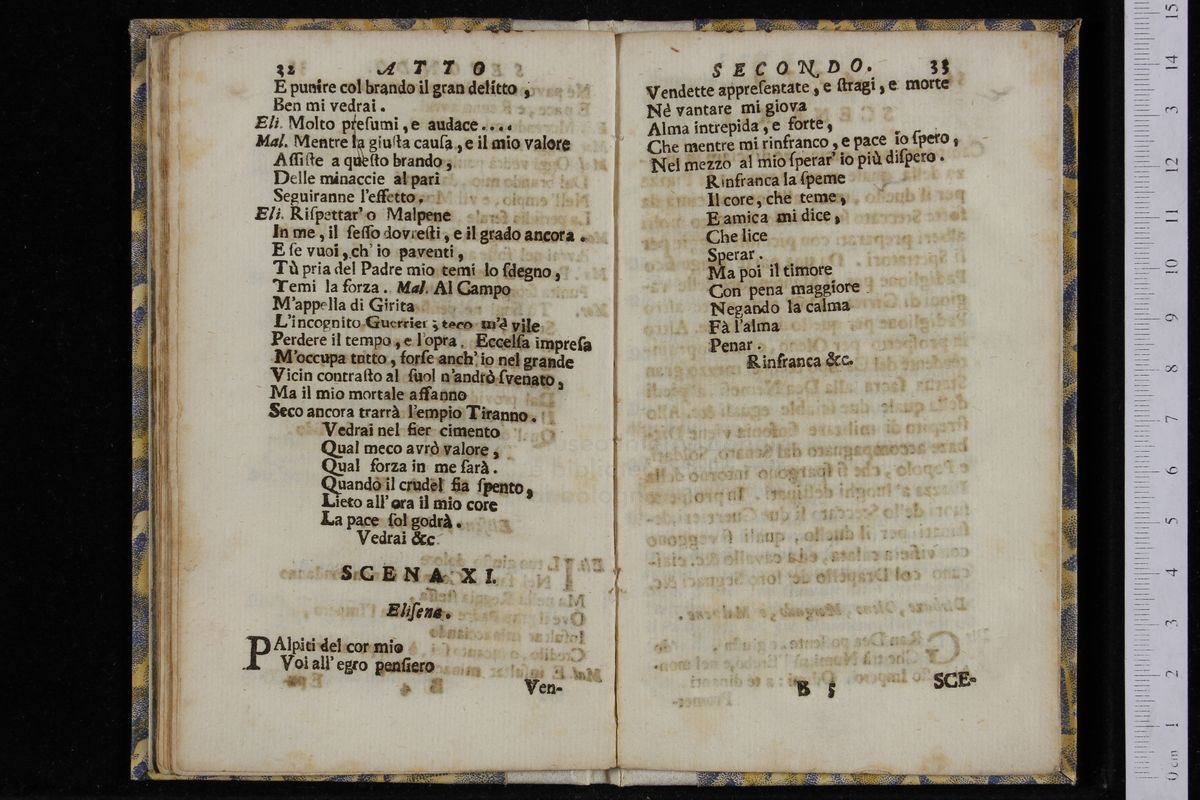 32 ATTO
E punire col brando il gran delitto,
Ben mi vedrai.
Eli. Molto preſumi, e audace....
Mal. Mentre la giuſta cauſa, e il mio valore
Aſſiſte a queſto brando,
Delle minaccie al pari
Seguiranne l'effetto.
Eli. Riſpettar' o Malpene
In me, il ſeſſo dovreſti, e il grado ancora.
E ſe vuoi, ch' io paventi,
Tù pria del Padre mio temi lo ſdegno,
Temi la forza. Mal. Al Campo
M'appella di Girita
L'incognito Guerrier; teco m'è vile
Perdere il tempo, e l'opra. Eccelſa impreſa
M'occupa tutto, forſe anch' io nel grande
Vicin contraſto al ſuol n'andrò ſvenato,
Ma il mio mortale affanno
Seco ancora trarrà l'empio Tiranno.
Vedrai nel fier cimento
Qual meco avrò valore,
Qual forza in me ſarà.
Quando il crudel fia ſpento,
Lieto all' ora il mio core
La pace ſol godrà.
Vedrai &c.
SCENA XI.
Eliſena.
PAlpiti del cor mio
Voi all' egro penſiero
Ven-
SECONDO. 33
Vendette appreſentate, e ſtragi, e morte
Nè vantare mi giova
Alma intrepida, e forte,
Che mentre mi rinfranco, e pace io ſpero,
Nel mezzo al mio ſperar' io più diſpero.
Rinfranca la ſpeme
Il core, che teme,
E amica mi dice,
Che lice
Sperar.
Ma poi il timore
Con pena maggiore
Negando la calma
Fà l'alma
Penar.
Rinfranca &c.
B 5 SCE-